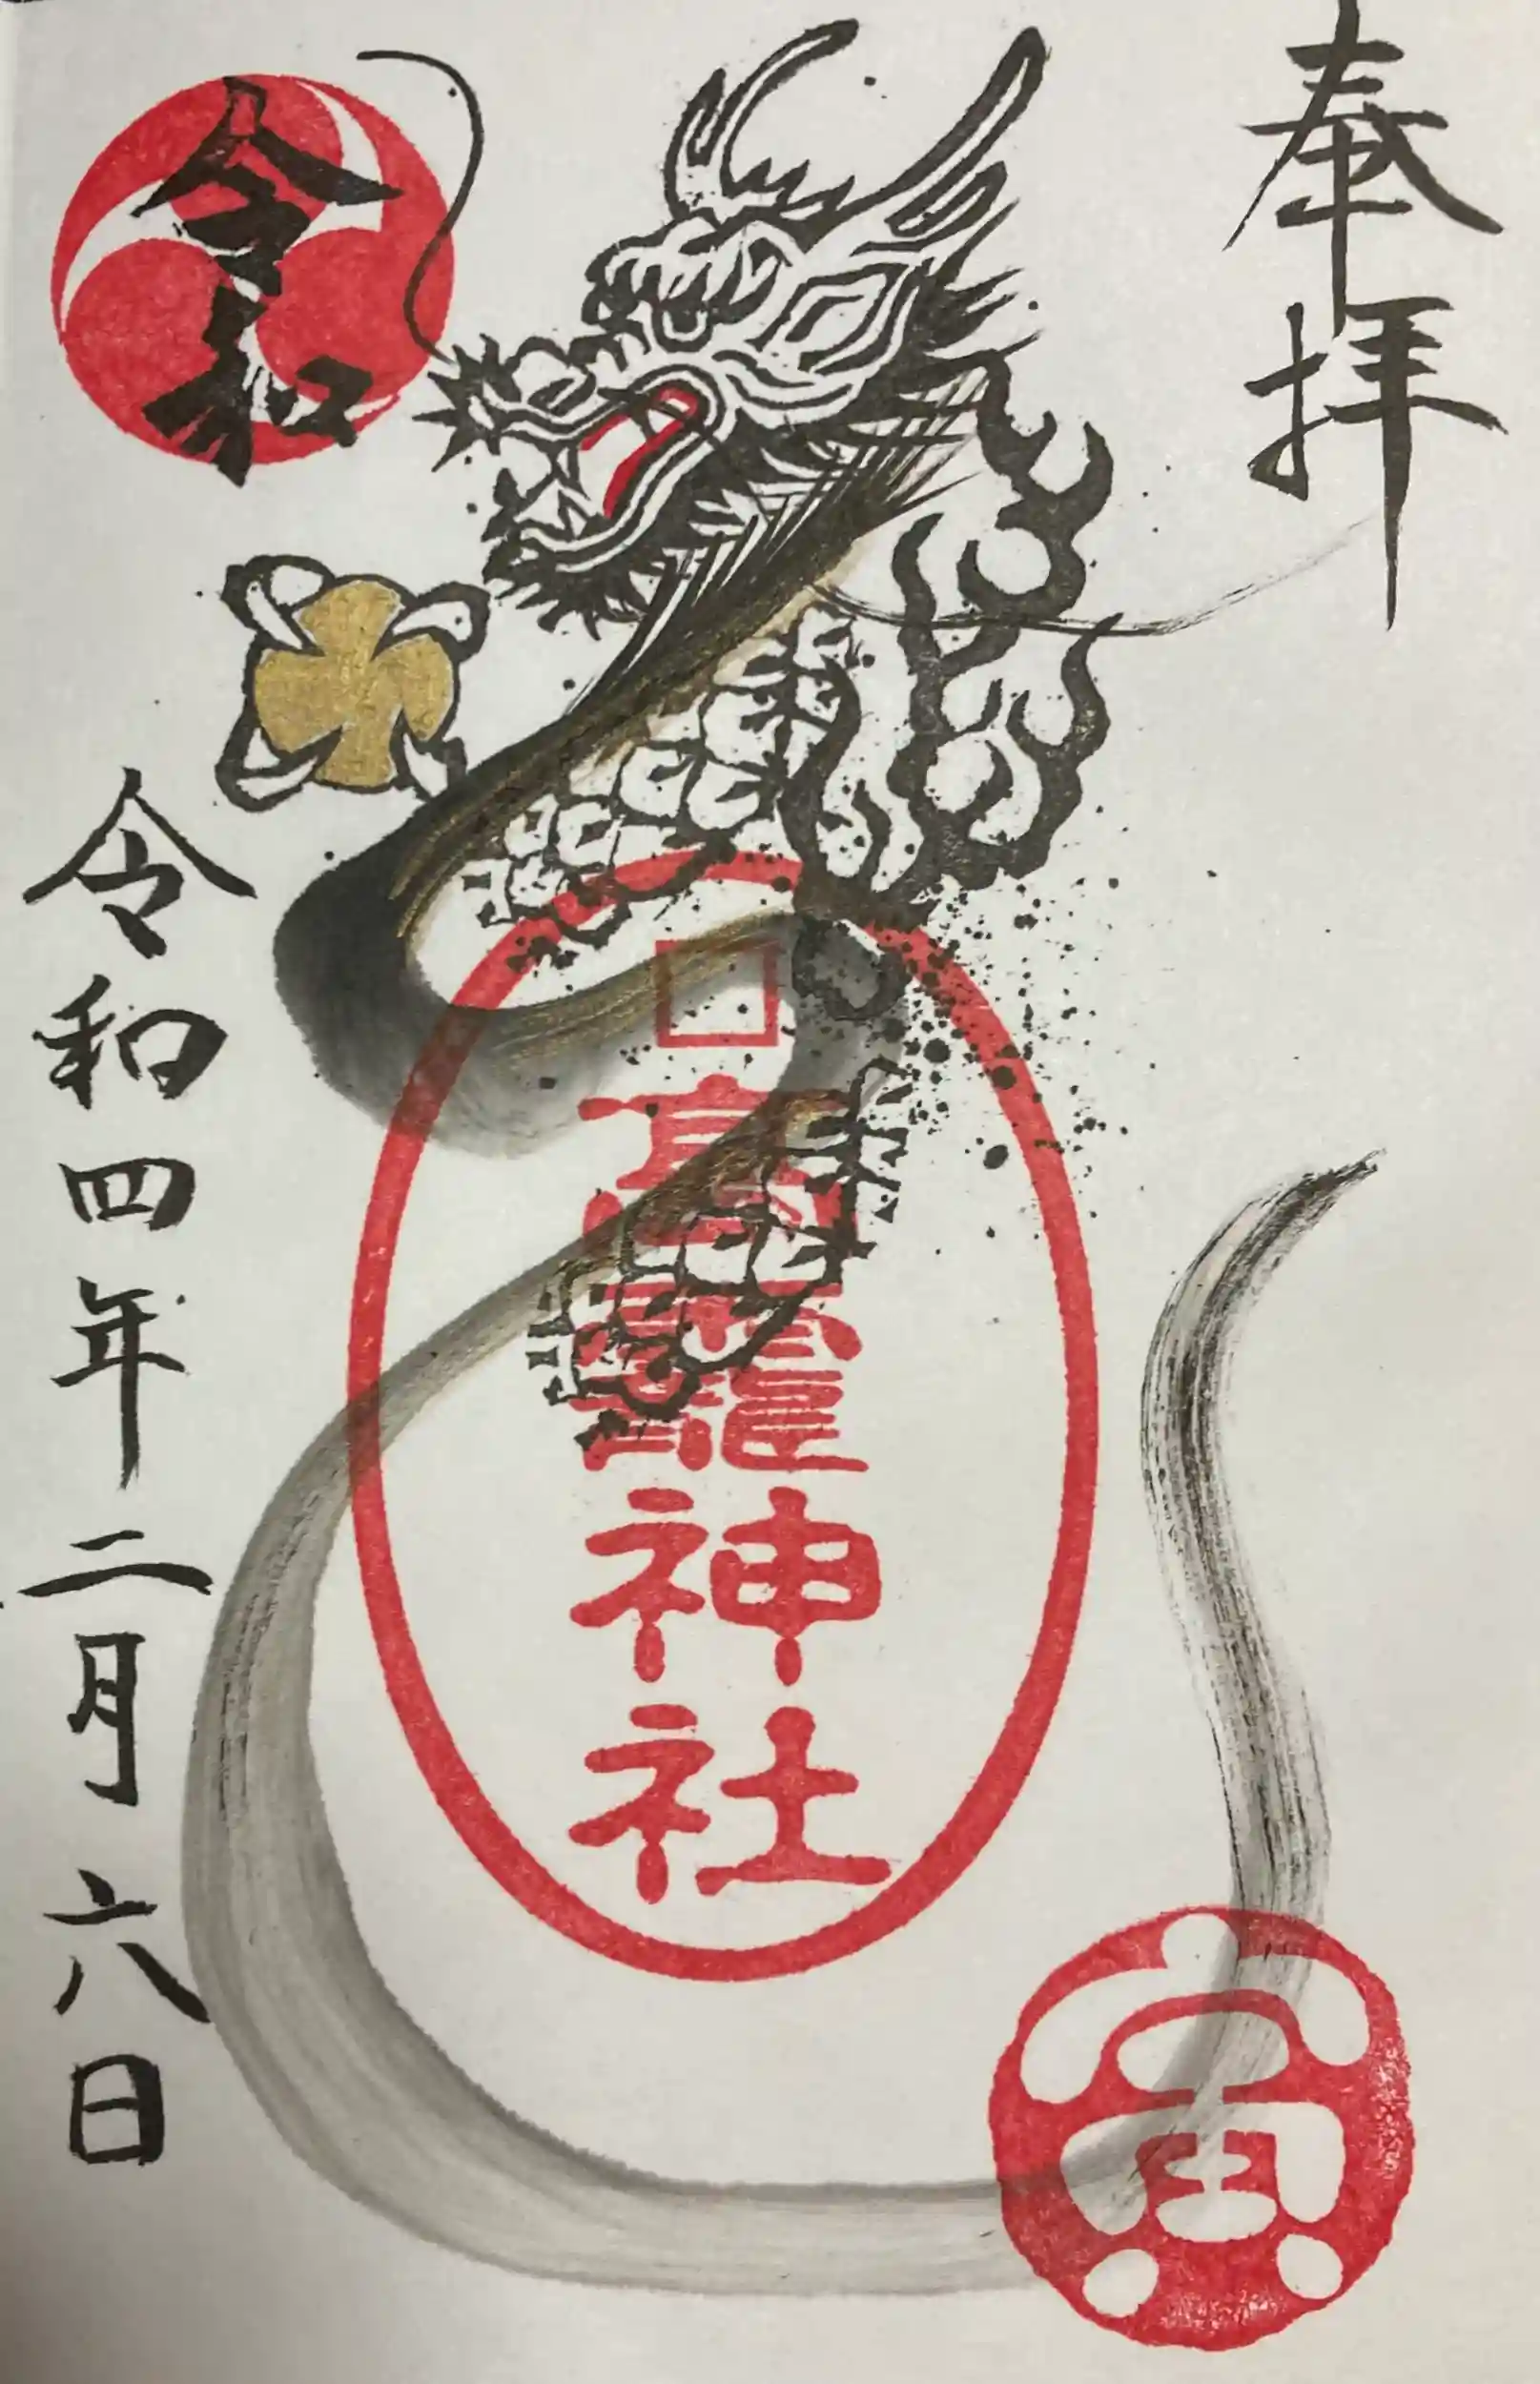 奉拝
口高龗神社
寅
令和
令和四年二月六日